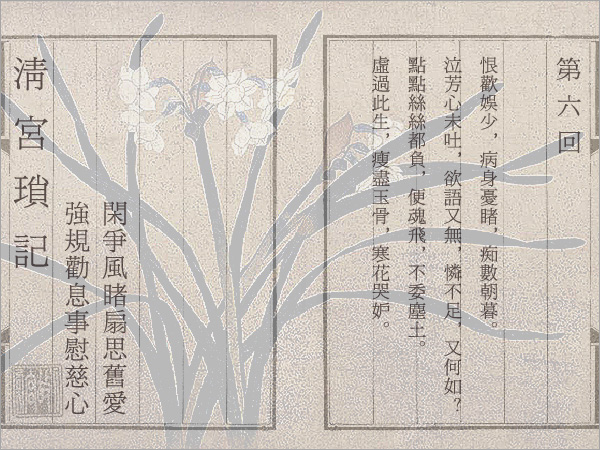 第六回
恨歡娛少，病身憂睹，痴數朝暮。
泣芳心未吐，欲語又無，憐不足，又何如？
點點絲絲都負，便魂飛，不委塵土。
虛過此生，瘦盡玉骨，寒花哭妒。
閑爭風睹扇思舊愛
強規勸息事慰慈心
清宮瑣記